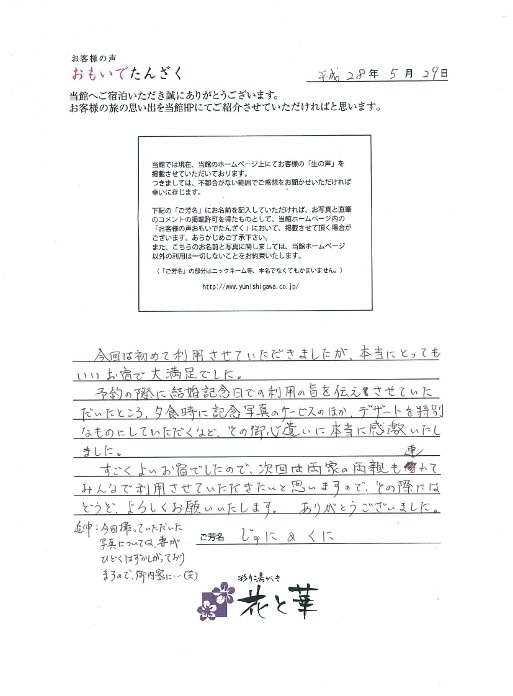 お客様の声
おもいでたんざく
平成 28年 5月 29日
当館へご宿泊いただき誠にありがとうございます。
お客様の旅の思い出を当館HPにてご紹介させていただければと思います。
当館では現在、当館のホームページ上にてお客様の「生の声」を
掲載させていただいております。
つきましては、不都合がない範囲でご感想をお聞かせいただければ
幸いに存じます。
下記の「ご芳名」にお名前を記入していただければ、お写真と直筆
のコメントの掲載許可を得たものとして、当館ホームページ内の
「お客様の声おもいでたんざく」において、掲載させて頂く場合が
ございます。あらかじめご了承下さい。
また、こちらのお名前と写真に関しましては、当館ホームページ
以外の利用は一切しないことをお約束いたします。
（「ご芳名」の部分はニックネーム等、本名でなくてもかまいません。）
http://www.yunishigawa.co.jp/
今回は初めて利用させていただきましたが、本当にとっても
いいお宿で大満足でした。
予約の際に結婚記念日での利用の旨を伝えさせていた
だいたところ、夕食時に記念写真のサービスのほか、デザートを特別
なものにしていただくなど、その御心遣いに本当に感激いたし
ました。
すごくよいお宿でしたので、次回は両家の両親も連れて
みんなで利用させていただきたいと思いますので、その際には
どうぞ、よろしくお願いいたします。 ありがとうございました。
追伸:今回撮っていただいた
写真については、妻が
ひどくはずかしがっており
ますので、御内密に…(笑)
ご芳名 じゅに & くに
花と華